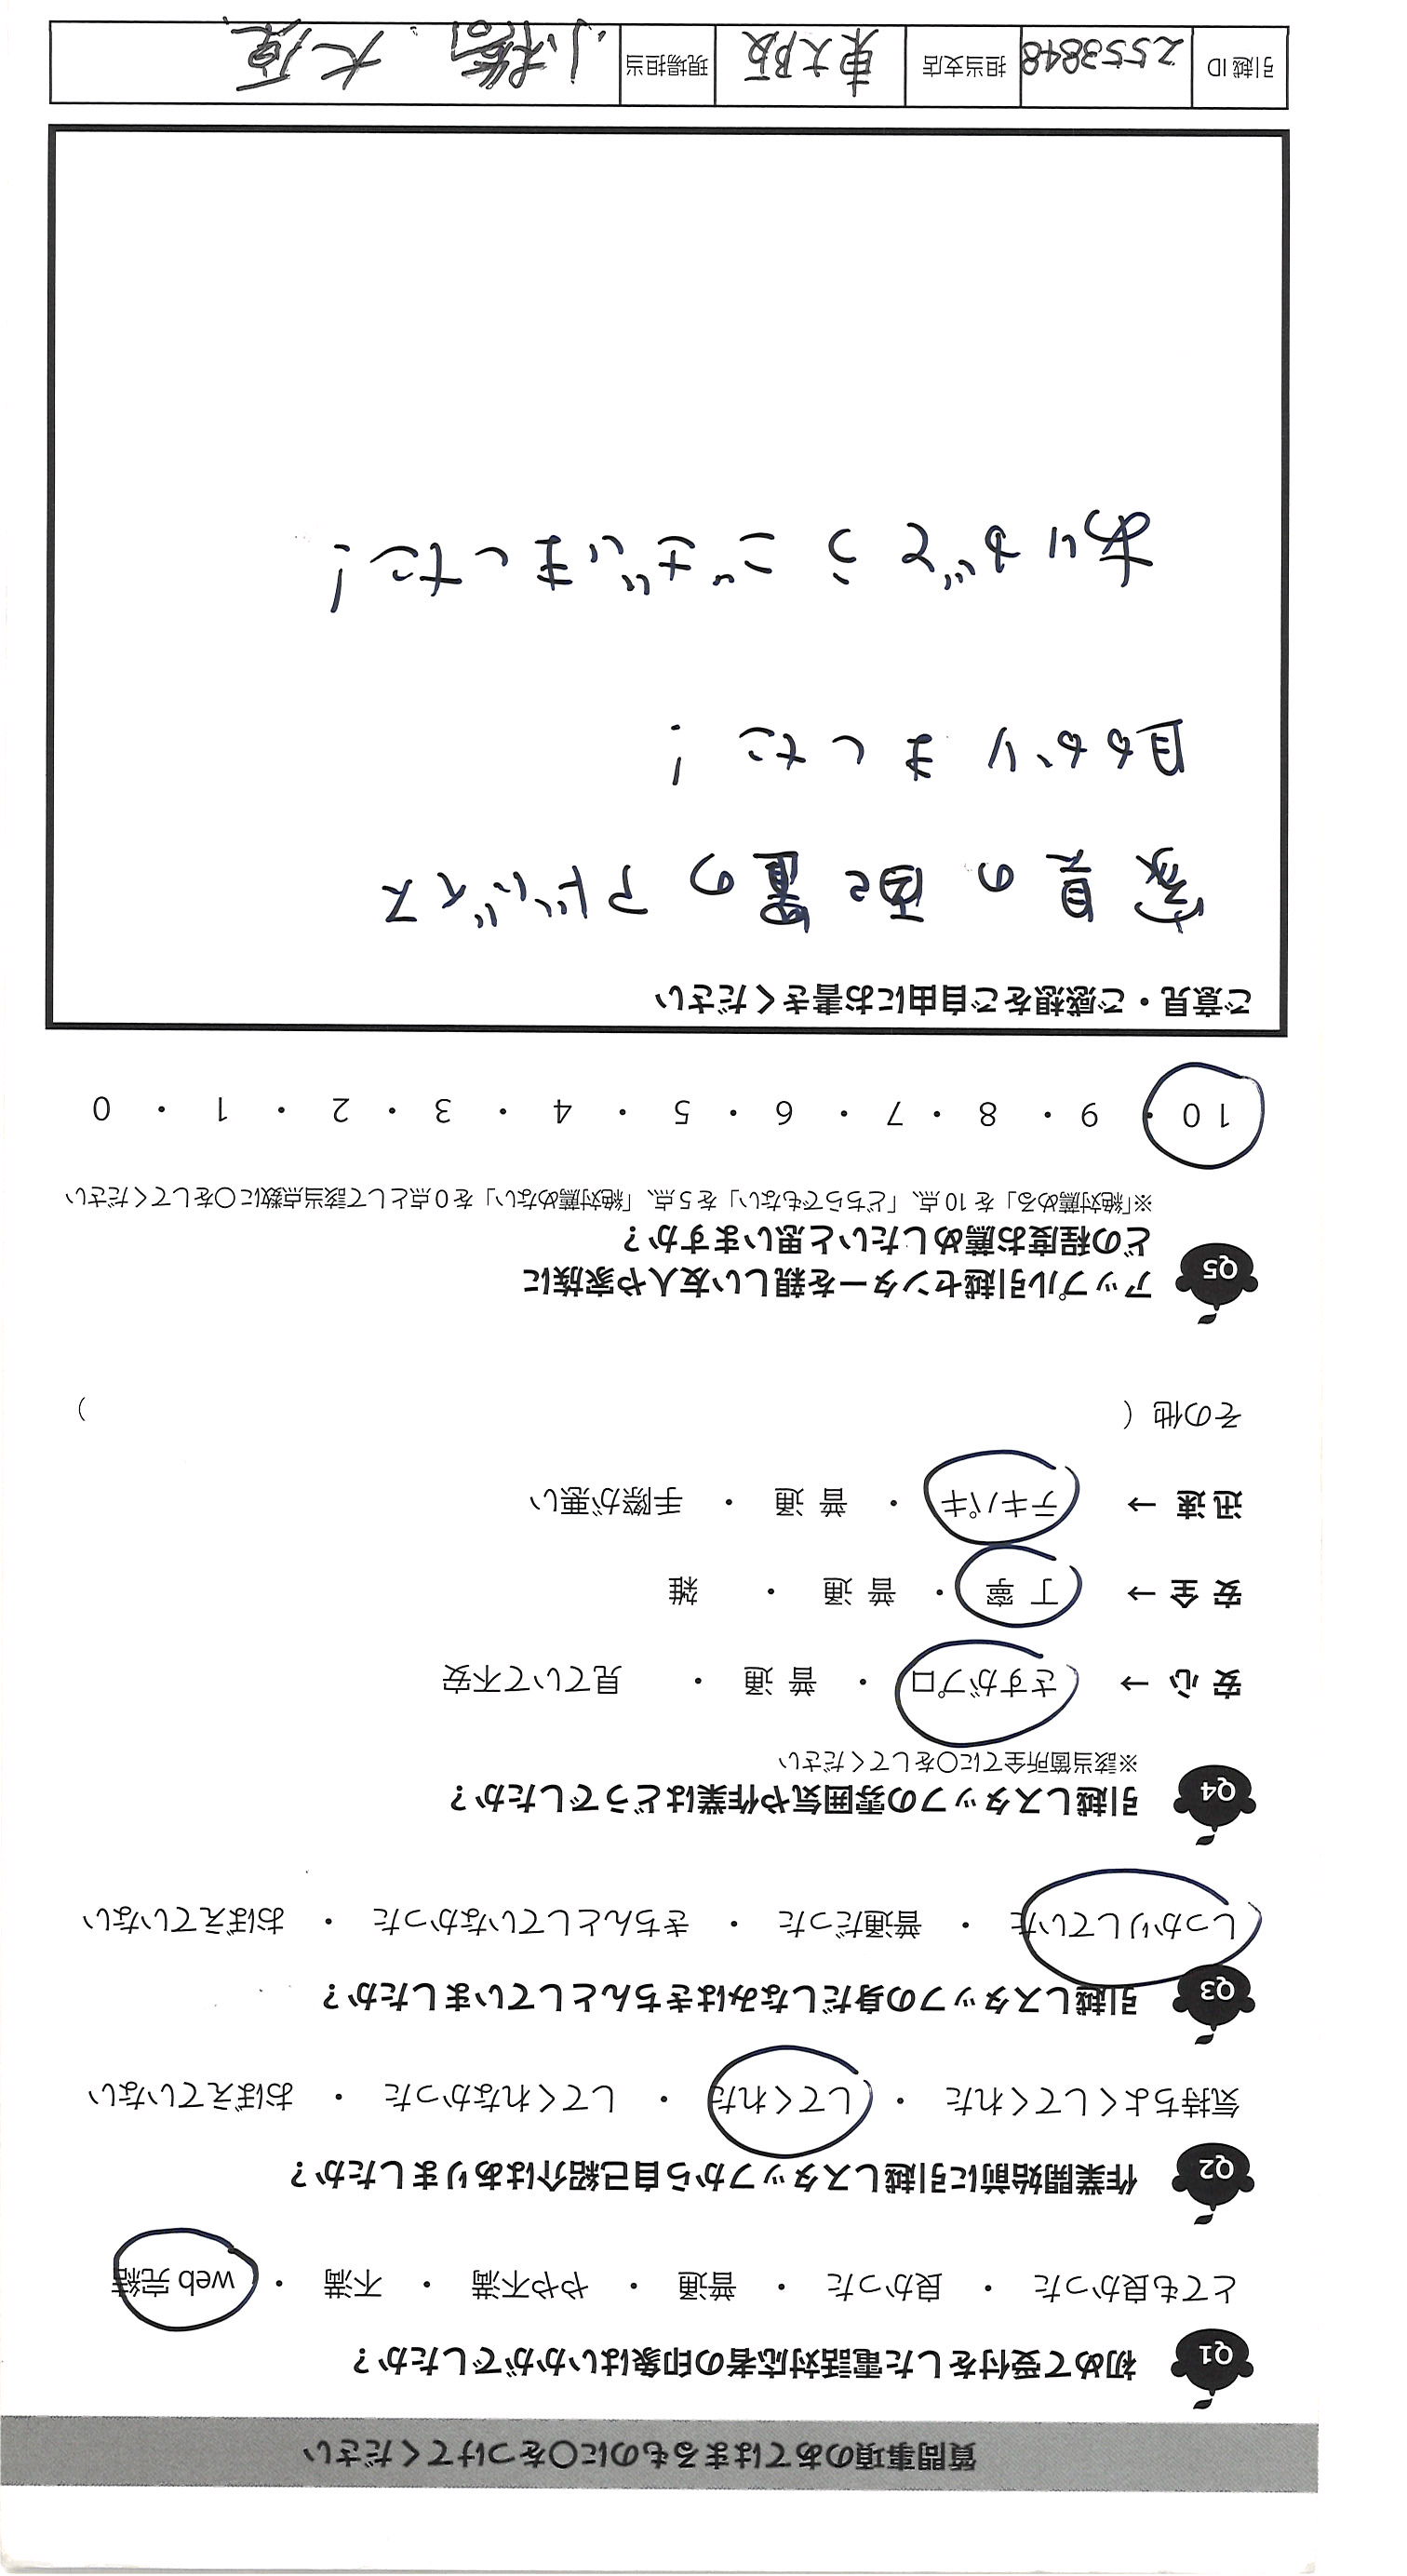 質問事項のあてはまるものに〇をつけてください
Q1 初めて受付をした電話対応者の印象はいかがでしたか？
とても良かった ・ 良かった ・ 普通 ・ やや不満 ・ 不満 ・ web 完結
Q2 作業開始前に引越しスタッフから自己紹介はありましたか？
気持ちよくしてくれた ・ してくれた ・ してくれなかった ・ おぼえていない
Q3 引越しスタッフの身だしなみはきちんとしていましたか？
しっかりしていた ・ 普通だった ・ きちんとしていなかった ・ おぼえていない
Q4 引越しスタッフの雰囲気や作業はどうでしたか？
※該当箇所全てに〇をしてください
安 心 → さすがプロ ・ 普 通 ・ 見ていて不安
安 全 → 丁 寧 ・ 普 通 ・ 雑
迅 速 → テキパキ ・ 普 通 ・ 手際が悪い
その他（ ）
Q5 アップル引越センターを親しい友人や家族に
どの程度お薦めしたいと思いますか？
※「絶対薦める」を 10 点、「どちらでもない」を 5 点、「絶対薦めない」を 0 点として該当点数に〇をしてください
10 ・ 9 ・ 8 ・ 7 ・ 6 ・ 5 ・ 4 ・ 3 ・ 2 ・ 1 ・ 0
ご意見・ご感想をご自由にお書きください
家具の配置のアドバイス
助かりました！
ありがとうございました！
引越 ID 2553848 担当支店 東大阪 現場担当 小橋